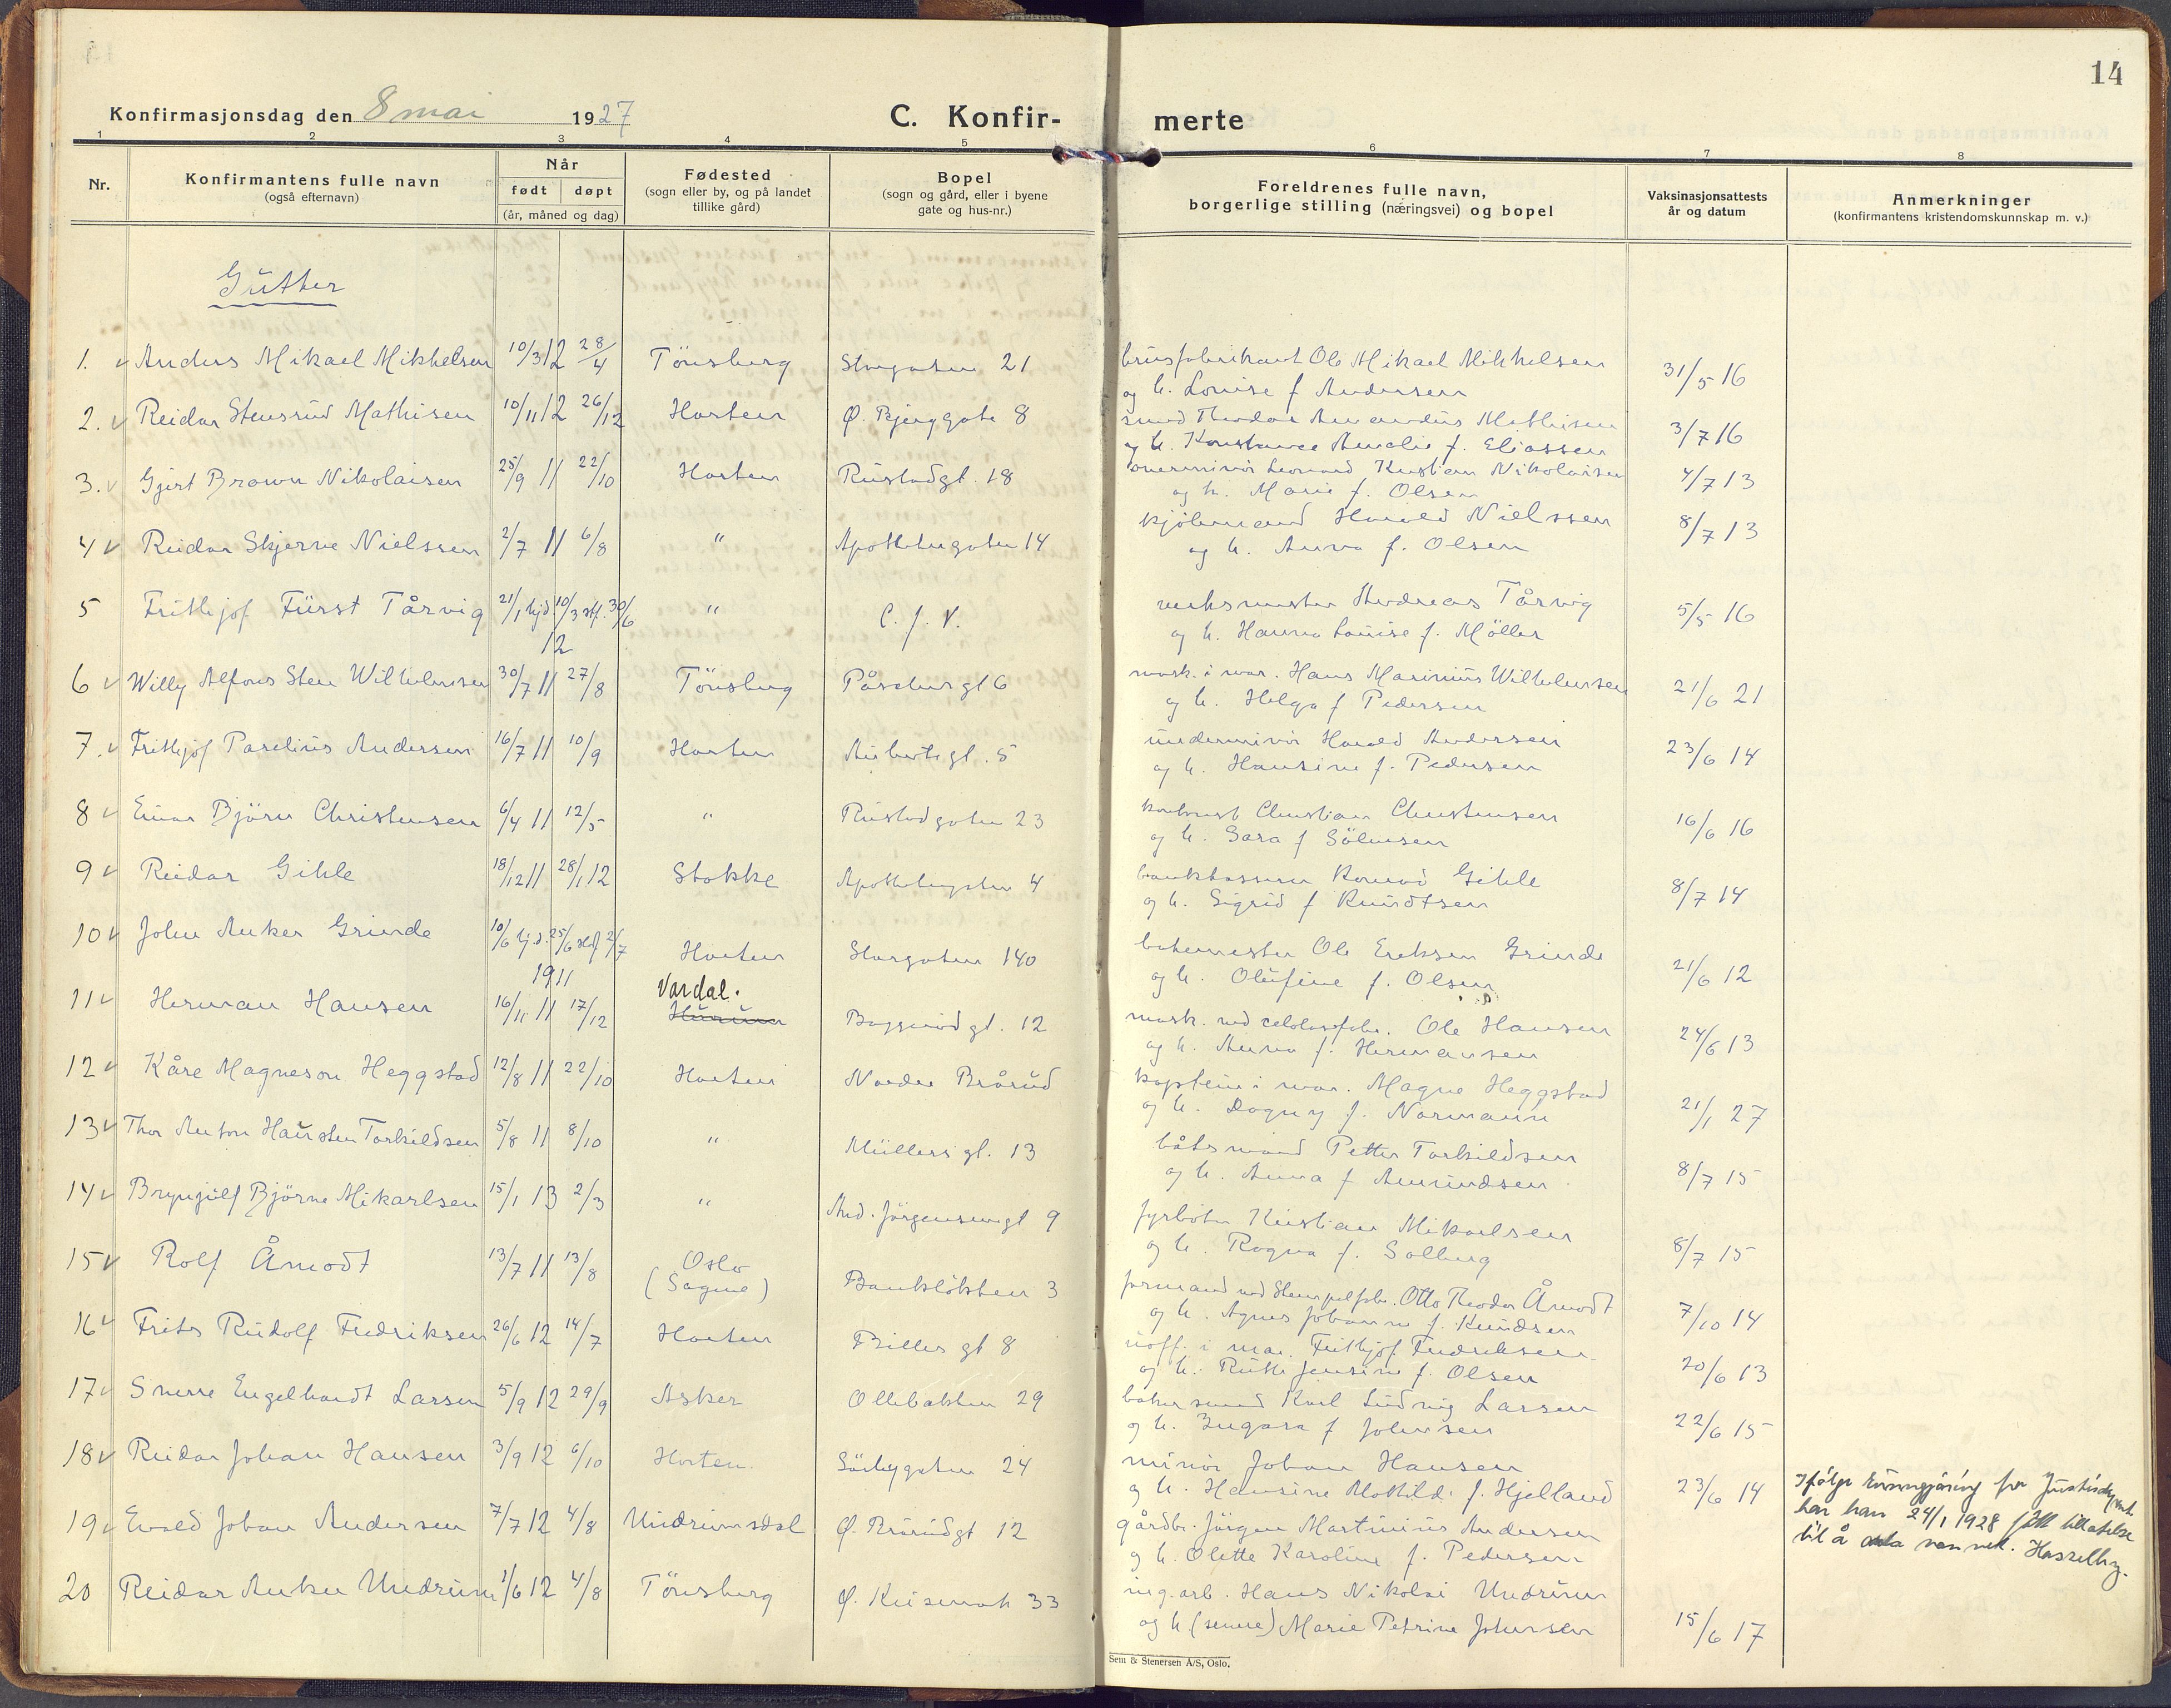 14
Konfirmasjonsdag den 8 mai 1927
C. Konfir- merte
1 2 3 4 5 6 7 8
Nr.
Konfirmantens fulle navn
(også efternavn)
Når
født døpt
(år, måned og dag)
Fødested
(sogn eller by, og på landet
tillike gård)
Bopel
(sogn og gård, eller i byene
gate og hus-nr.)
Foreldrenes fulle navn,
borgerlige stilling (næringsvei) og bopel
Vaksinasjonsattests
år og datum
Anmerkninger
(konfirmantens kristendomskunnskap m. v.)
Gutter
1. Anders Mikael Mikkelsen 10/3 12 28/4 Tönsberg Storgaten 21 brusfabrikant Ole Mikael Mikkelsen 31/5 16
og h. Louise f Andersen
2. Reidar Stensrud Mathisen 10/11 12 26/12 Horten Ø. Bjerggate 8 smed Theodor Amandus Mathisen 3/7 16
og h. Konstance Amalie f. Eliassen
3. Gjert Brown Nikolaisen 25/9 11 22/10 Horten Rustadgt. 18 overminör Leonard Kristian Nikolaisen 4/7 13
og h. Marie f. Olsen
4 Reidar Skjerve Nielssen 2/7 11 6/8 " Apothekergaten 14 Harald Nielssen 8/7 13
og h. Anna f. Olsen
5 Frithjof Fürst Tårvig 21/1 hjd. 10/3 stf. 30/6 " C. J. V. Andreas Tårvig 5/5 16
12 og h. Hanna Louise f. Möller
6 Willy Alfons Sten Wilhelmsen 30/7 11 27/8 Tönsberg gt 6 mask. i mar. Hans Marinius Wilhelmsen 21/6 21
og h. Helga f Pedersen
7. Frithjof Parelius Andersen 16/7 11 10/9 Horten Aubertsgt. 5 underminör Harald Andersen 23/6 14
og h. Hansine f. Pedersen
8 Einar Björn Christensen 6/4 11 12/5 " Rustadgaten 23 Christian Christensen 16/6 16
og h. Sara f Sölvesen
9 Reidar Gihle 18/12 11 28/1 12 Stokke Apothekergaten 4 bankkasserer Konrad Gihle 8/7 14
og h. Sigrid f Knudtsen
10 John Anker Grinde 10/6 hjd. 25/6 stf 2/7 Horten Storgaten 140 Ole Eriksen Grinde 21/6 12
1911 og h. Olufine f. Olsen
11 Herman Hansen 16/11 11 17/12 Vardal. Hurum Baggerödgt. 12 mask. ved celulosefabr. Ole Hansen 24/6 13
og h. Anna f. Hermansen
12 Kåre Magneson Heggstad 12/8 11 22/10 Horten Nordre Brårud kaptein i mar. Magne Heggstad 21/1 27
og h. Dagny f. Normann
13 Thor Anton Haugsten Torkildsen 5/8 11 8/10 " Müllers gt. 13 båtsmand Petter Torkildsen 8/7 15
og h. Anna f Amundsen
14 Brynjulf Björne Mikarlsen 15/1 13 2/3 " And. Jörgensensgt 9 fyrböter Kristian Mikaelsen 8/7 15
og h. Ragna f. Solberg
15 Rolf Åmodt 13/7 11 13/8 Oslo Bankløkken 3 formand ved Stempelfabr. Otto Theodor Åmodt 7/10 14
(Sagene) og h. Agnes Johanne f. Knudsen
16 Frits Rudolf Fredriksen 26/6 12 14/7 Horten Billes gt 8 uoff. i mar. Frithjof Fredriksen 20/6 13
og h. Ruth Jensine f. Olsen
17 Sverre Engelhardt Larsen 5/9 12 29/9 Asker Ollebakken 29 bakersvend Karl Ludvig Larsen 22/6 15
og h. Ingara f Johnsen
18 Reidar Johan Hansen 3/9 12 6/10 Horten Sörbygaten 24 minör Johan Hansen 23/6 14
og h. Hansine Mathilde f. Hjelland
19 Evald Johan Andersen 7/7 12 4/8 Undrumsdal Ø. Brårudgt 12 gårdbr. Jörgen Martinius Andersen
og h. Olette Karoline f. Pedersen
Ifölge kunngjöring fra Justisdepart.
har han 24/1 1928 fått tillatelse
til å anta navnet Hasselberg.
20 Reidar Anker Undrum 1/6 12 4/8 Tönsberg Ø. Keisemark 33 ing. arb. Hans Nikolai Undrum 15/6 17
og h. (senere) Marie Petrine Johnsen
Sem & Stenersen A/S, Oslo.